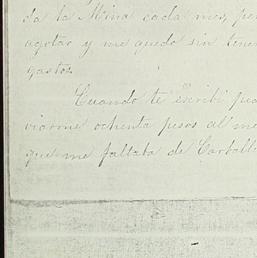 da la Mina cada mes, por
agotar y me quedo sin tener
gastos.
Cuando te escribí pu
viarme ochenta pesos al me
que me faltaba de Carball